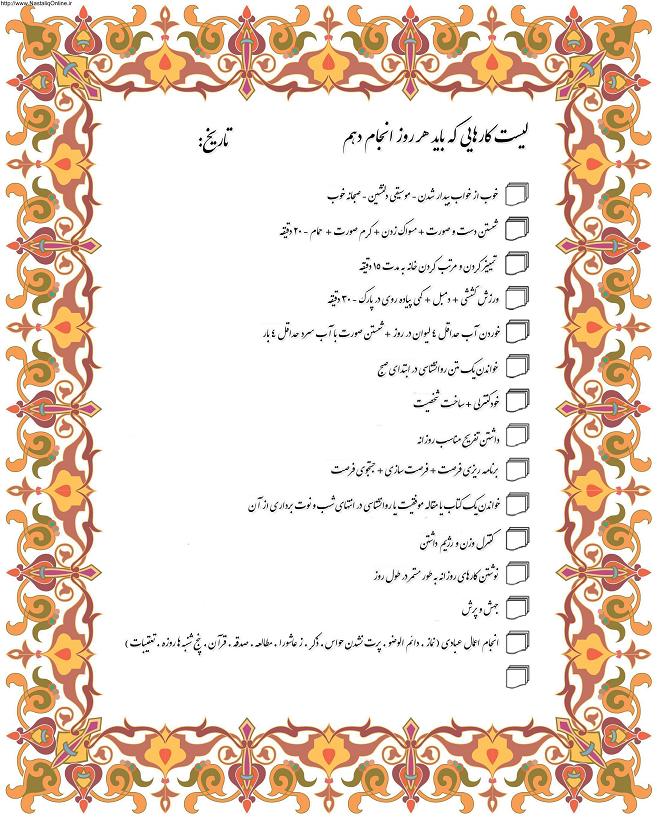 http://www.NastaliqOnline.ir
لیست کارهایی که باید هر روز انجام دهم
تاریخ:
خوب از خواب بیدار شدن - موسیقی دلنشین - صبحانه خوب
شستن دست و صورت + مسواک زدن + کرم صورت + حمام - ۲۰ دقیقه
تمییز کردن و مرتب کردن خانه به مدت ۱۵ دقیقه
ورزش کششی + دمبل + کمی پیاده روی در پارک - ۳۰ دقیقه
خوردن آب حداقل ٤ لیوان در روز + شستن صورت با آب سرد حداقل ٤ بار
خواندن یک متن روانشناسی در ابتدای صبح
خودکنترلی + ساخت شخصیت
داشتن تفریح مناسب روزانه
برنامه ریزی فرصت + فرصت سازی + جستجوی فرصت
خواندن یک کتاب یا مقاله موفقیت یا روانشناسی در انتهای شب و نوت برداری از آن
کنترل وزن و رژیم داشتن
نوشتن کارهای روزانه به طور مستمر در طول روز
جهش و پرش
انجام اعمال عبادی ( نماز ، دائم الوضو ، پرت نشدن حواس ، ذکر ، ز عاشورا ، مطالعه ، صدقه ، قرآن ، پنج شنبه ها روزه ، تعقیبات )